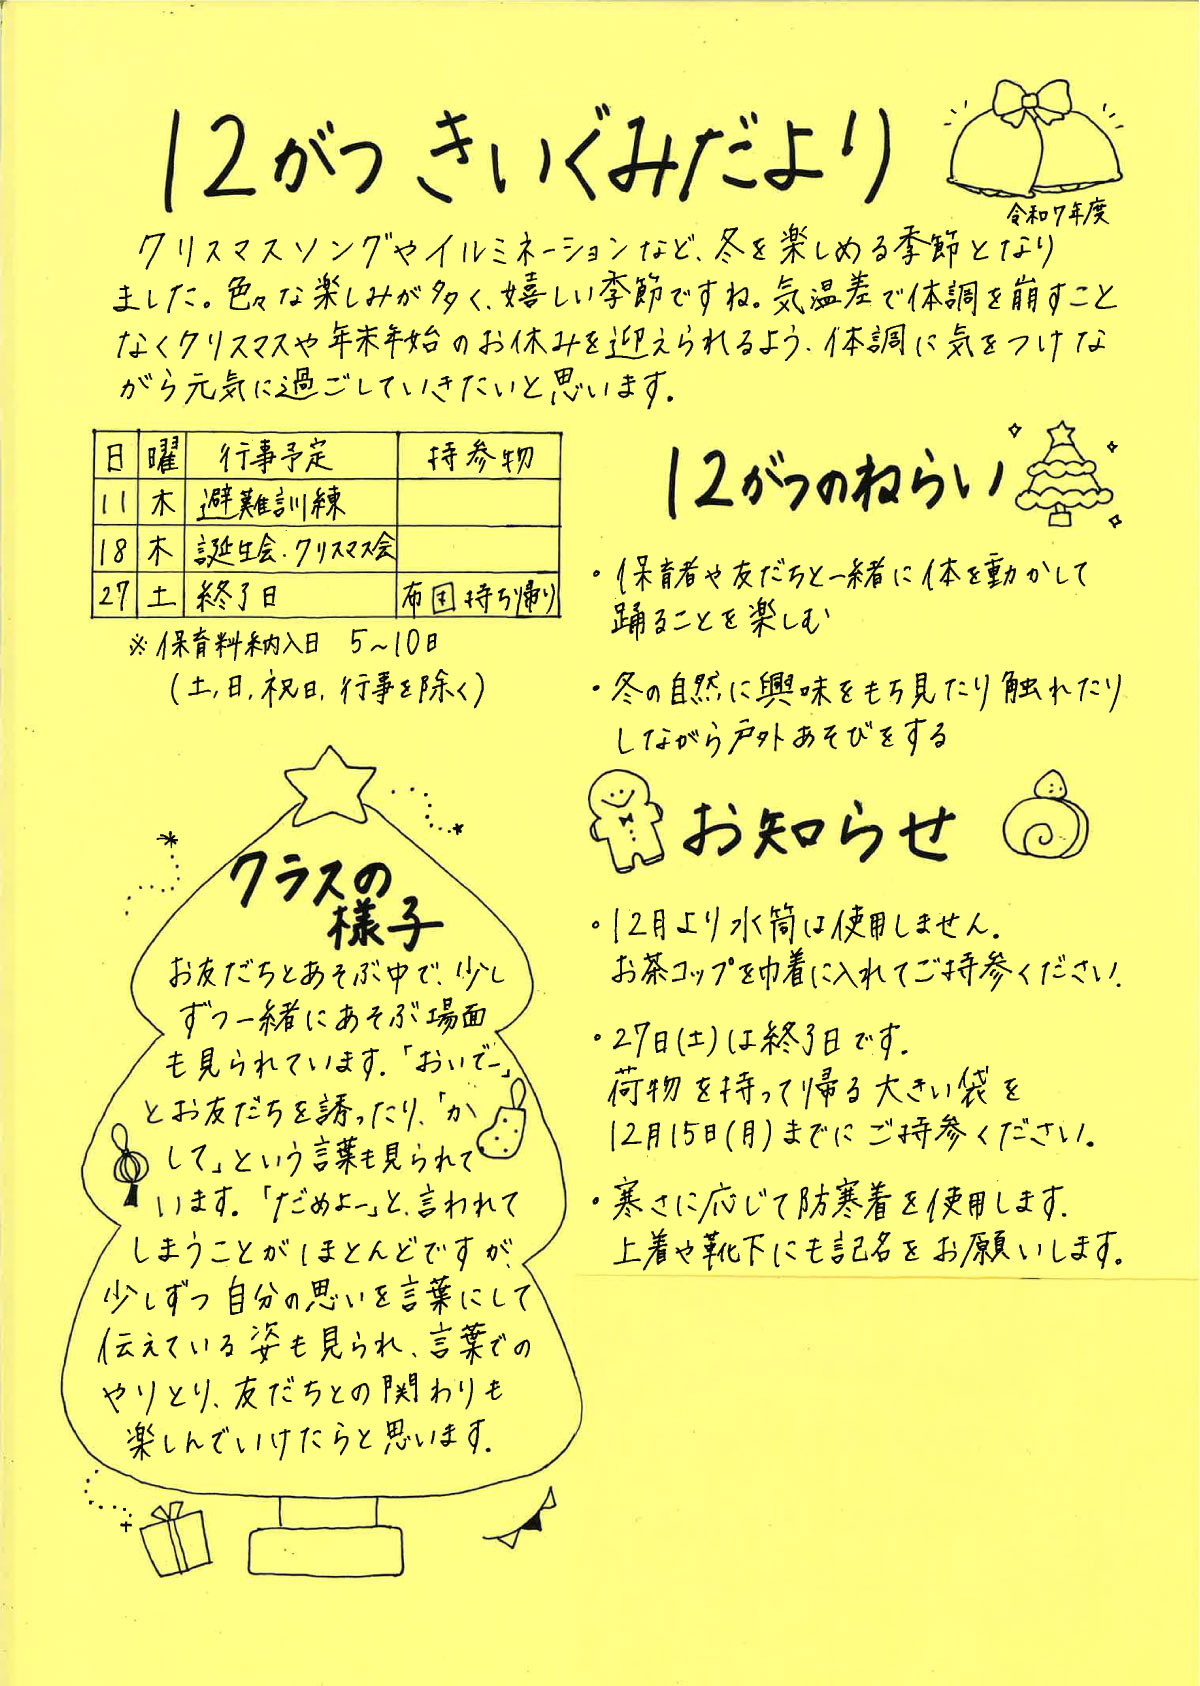 12がつ きいぐみだより
令和7年度
クリスマスソングやイルミネーションなど、冬を楽しめる季節となり
ました。色々な楽しみが多く、嬉しい季節ですね。気温差で体調を崩すこと
なくクリスマスや年末年始のお休みを迎えられるよう、体調に気をつけな
がら元気に過ごしていきたいと思います。
日 曜 行事予定 持参物
11 木 避難訓練
18 木 誕生会・クリスマス会
27 土 終了日 布団持ち帰り
※保育料納入日 5~10日
(土,日,祝日,行事を除く)
12がつのねらい
・保育者や友だちと一緒に体を動かして
踊ることを楽しむ
・冬の自然に興味をもち見たり触れたり
しながら戸外あそびをする
お知らせ
・12月より水筒は使用しません。
お茶コップを巾着に入れてご持参ください。
・27日(土)は終了日です。
荷物を持って帰る大きい袋を
12月15日(月)までにご持参ください。
・寒さに応じて防寒着を使用します。
上着や靴下にも記名をお願いします。
クラスの
様子
お友だちとあそぶ中で、少し
ずつ一緒にあそぶ場面
も見られています。「おいでー」
とお友だちを誘ったり、「か
して」という言葉も見られて
います。「だめよー」と、言われて
しまうことがほとんどですが、
少しずつ自分の思いを言葉にして
伝えている姿も見られ、言葉での
やりとり、友だちとの関わりも
楽しんでいけたらと思います。